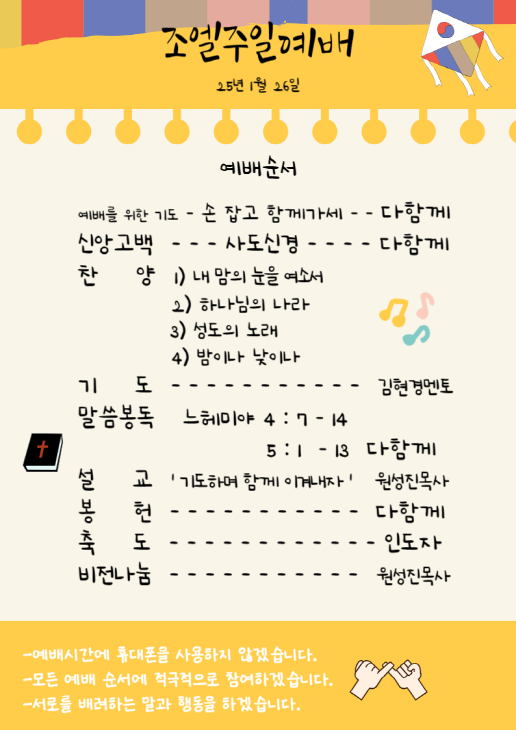 조엘주일예배
25년 1월 26일
예배순서
예배를 위한 기도 - 손 잡고 함께가세 - - 다함께
신앙고백 - - - 사도신경 - - - - 다함께
찬 양 1) 내 맘의 눈을 여소서
2) 하나님의 나라
3) 성도의 노래
4) 밤이나 낮이나
기 도 - - - - - - - - - - - 김현경멘토
말씀봉독 느헤미야 4 : 7 - 14
5 : 1 - 13 다함께
설 교 ' 기도하며 함께 이겨내자 ' 원성진목사
봉 헌 - - - - - - - - - - - 다함께
축 도 - - - - - - - - - - - - 인도자
비전나눔 - - - - - - - - - - - 원성진목사
-예배시간에 휴대폰을 사용하지 않겠습니다.
-모든 예배 순서에 적극적으로 참여하겠습니다.
-서로를 배려하는 말과 행동을 하겠습니다.